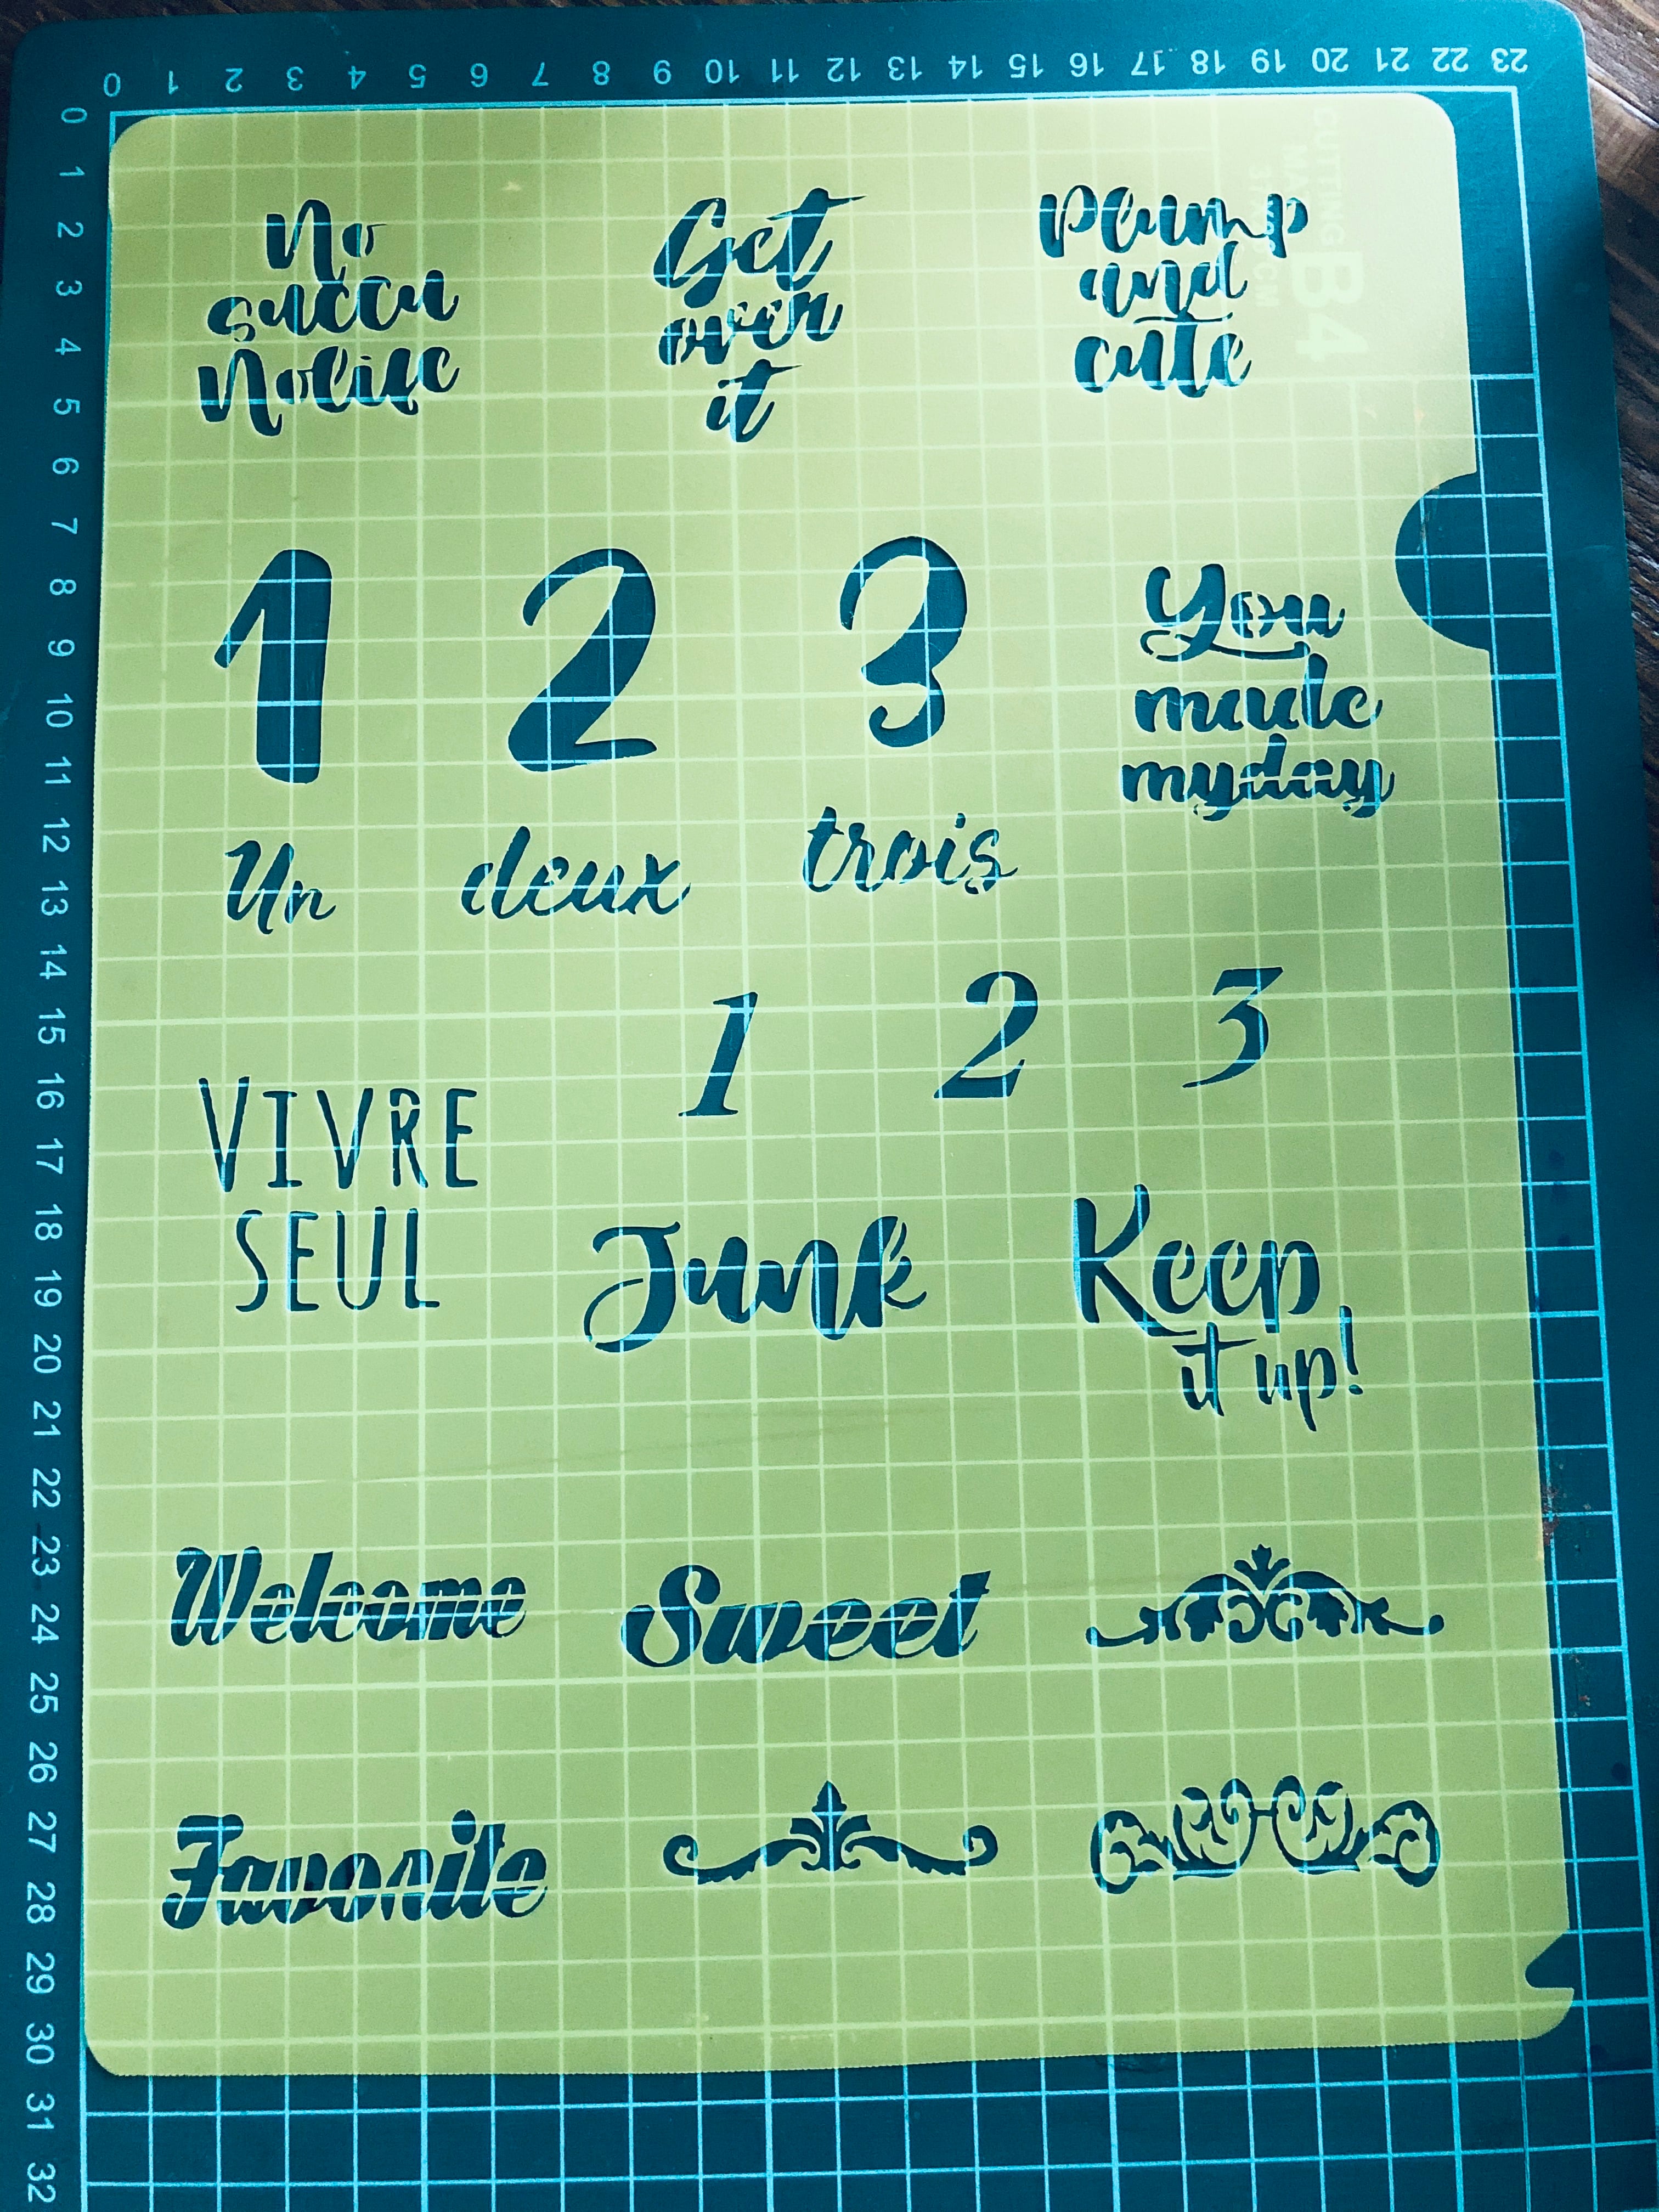 0 1 2 3 4 5 6 7 8 9 10 11 12 13 14 15 16 17 18 19 20 21 22 23
0 1 2 3 4 5 6 7 8 9 10 11 12 13 14 15 16 17 18 19 20 21 22 23 24 25 26 27 28 29 30 31 32
CUTTING
B4
No
succu
No life
Get
over
it
Plump
and
cute
1 2 3
You
made
my day
Un deux trois
1 2 3
VIVRE
SEUL
Junk
Keep
it up!
Welcome Sweet
Favorite